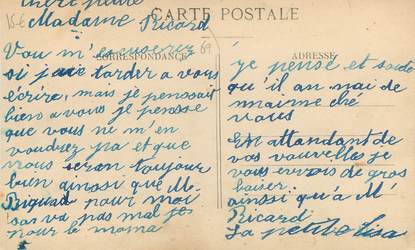 chère petite
Madame Ricard
CARTE POSTALE
15€
69
CORRESPONDANCE
ADRESSE
Vou m'escuserez
si jaie tarder a vous
écrire, mais je penssais
bien a vous je pensse
que vous ne m'en
voudrez pa et que
vous seran toujour
bien ainssi que M.
pour moi
sas va pas mal je
pour le moma
je pense et
qu'il an nai de
maime ché
vous
En attandant de
vos nouvelles je
vous envois de gros
baiser
ainssi qu'à Mr
Ricard
La petite Lisa